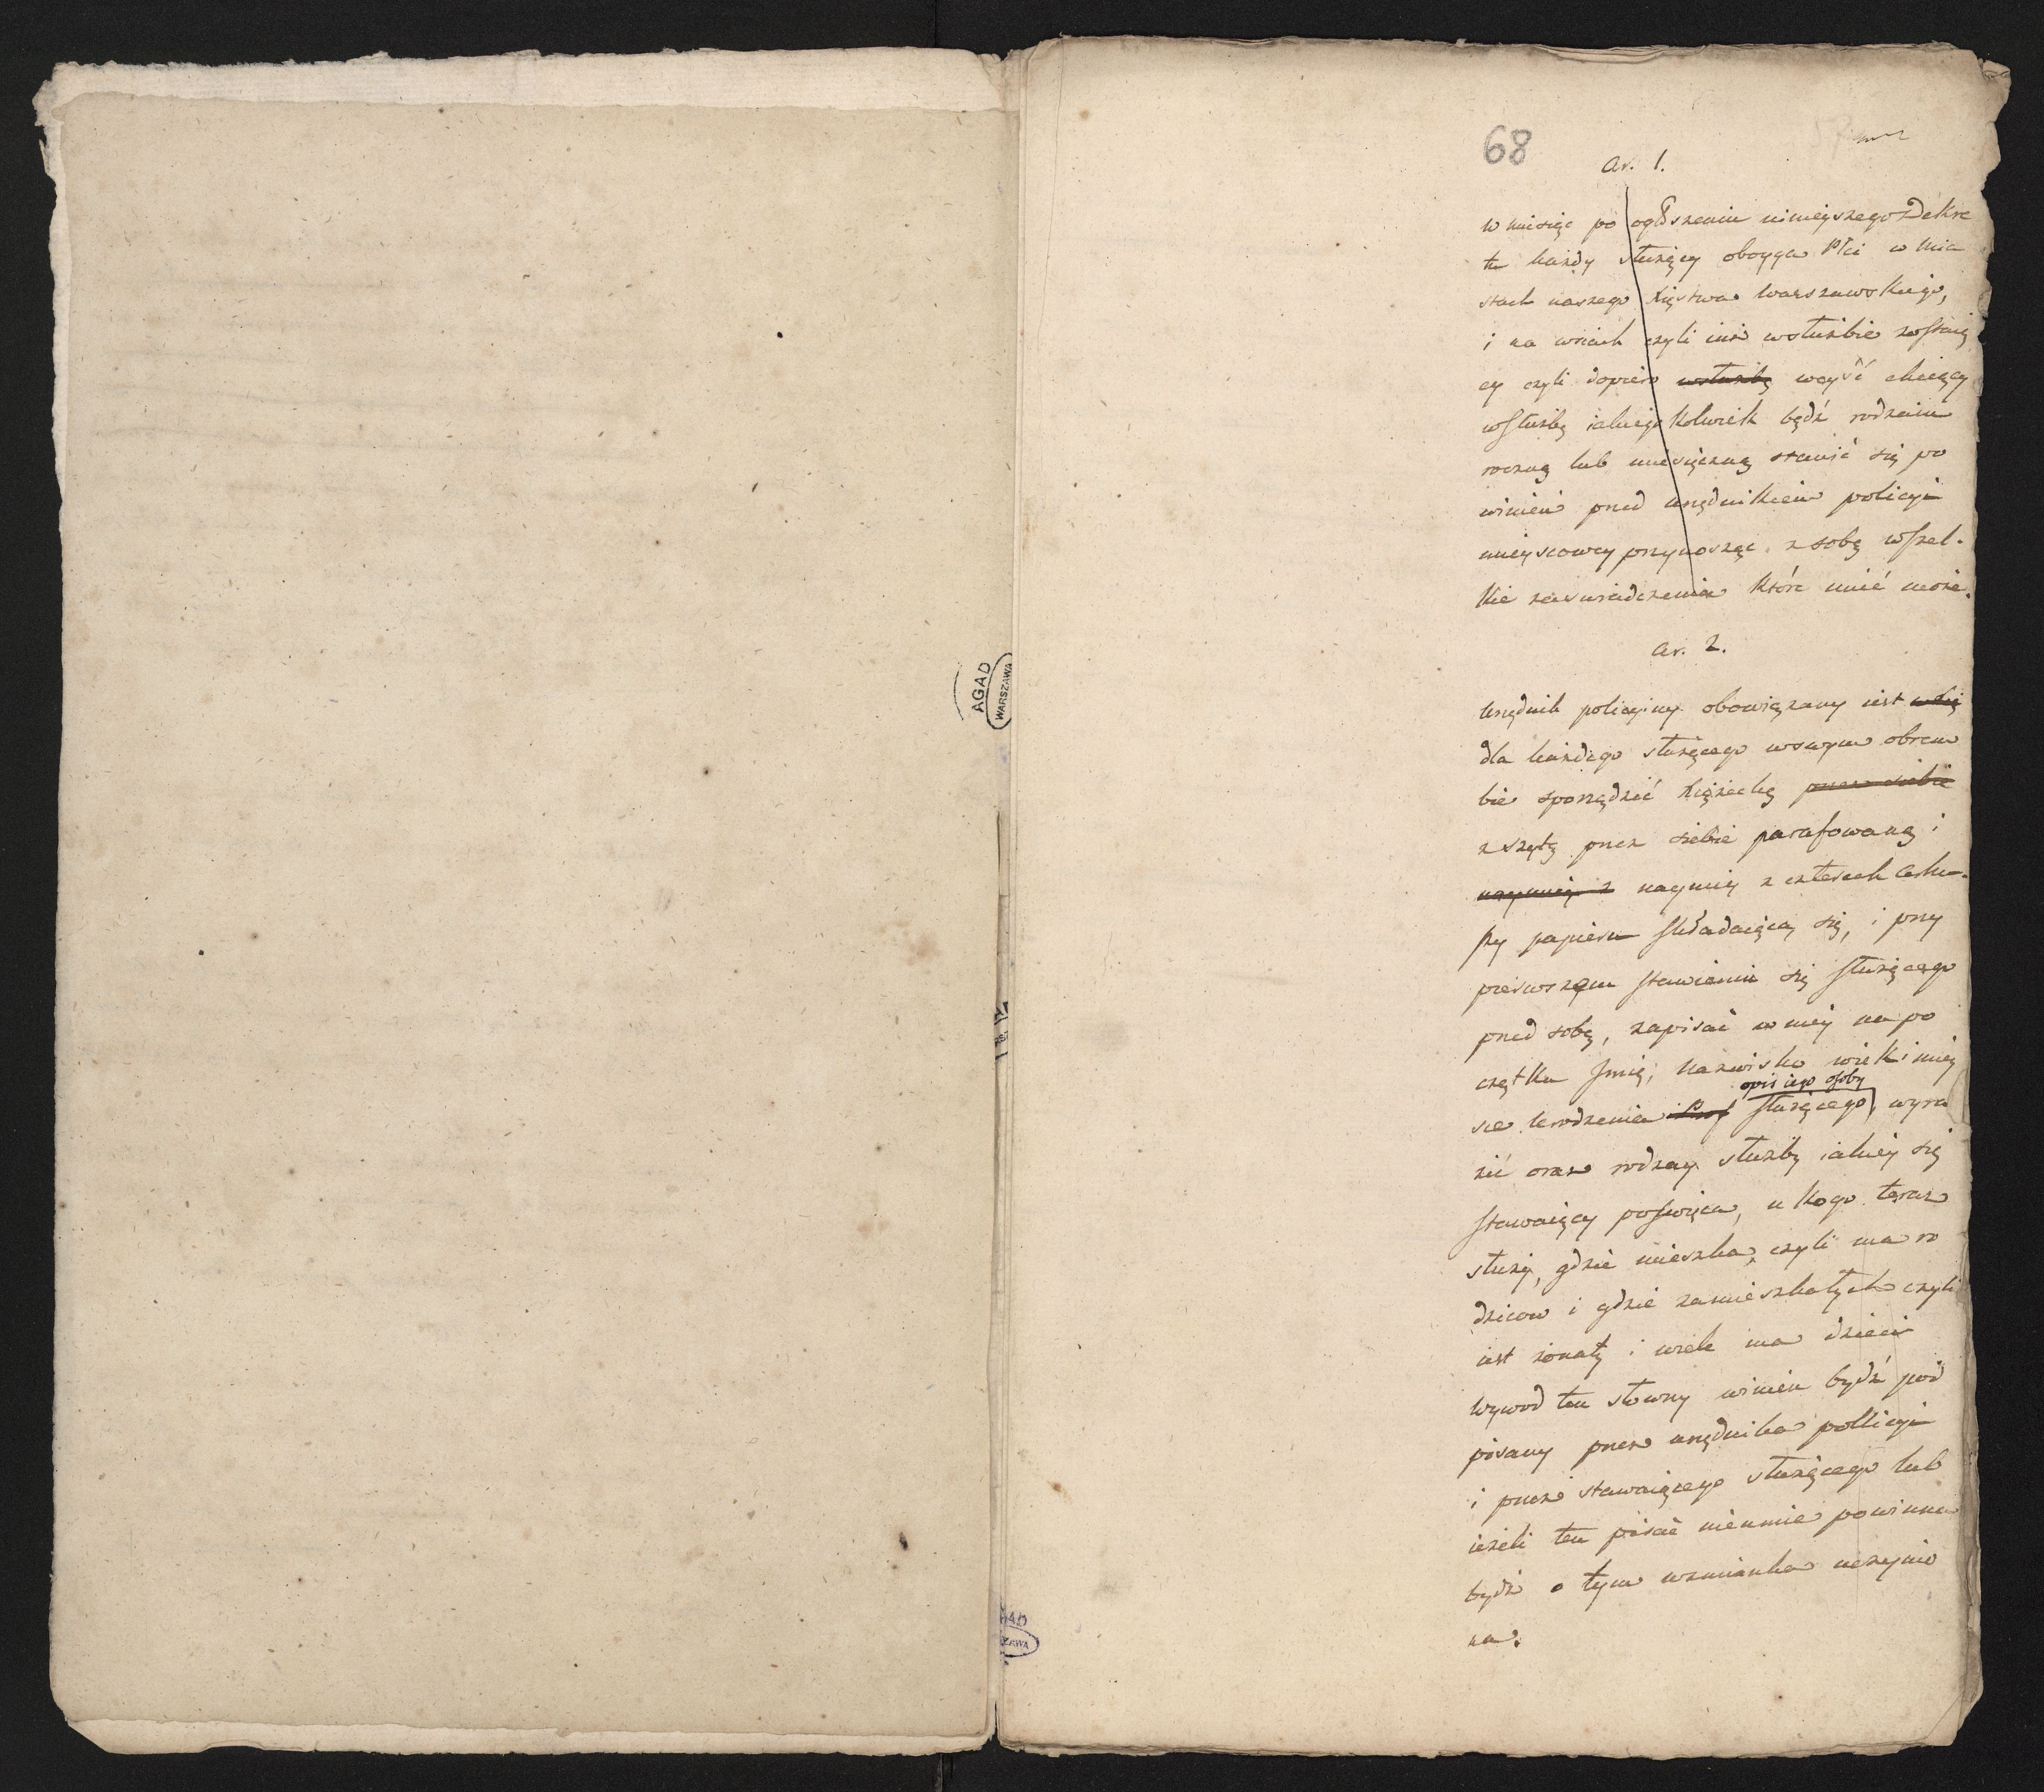 68
Ar. 1.
w miesiąc po ogłoszeniu ninieyszego Dekre
tu każdy służący oboyga Płci w Mia
stach naszego Xięstwa Warszawskiego,
i na wsiach czyli iuż wsłużbie zostaią
cy czyli dopiero wsłużbę weyść chcący
wsłużbę iakieg Kolwiek bądź rodzaiu
roczną lub miesięczną stawić się po
winien przed urzędnikiem policyi
mieyscowey przynosząc z sobą wszel.
kie zaswiadczenia które mieć może.
Ar. 2.
Urzędnik policyiny obowiązany iest
dla każdego służącego wswym obrem
bie sporządzić Xiążeckę przez siebie
zszytą przez siebie parafowaną i
naymniey z naymniey z czterech Arku-
szy papieru składaiącą się, i przy
pierwszym stawieniu się służącego
przed sobą, zapisać w niey na po
czątku Jmię, Nazwisko wiek i miey
opis iego osoby
sce Urodzenia służącego, wyra
zić oraz rodzay służby iakiey się
stawaiący poswięca, u kogo teraz
służy, gdzie mieszka, czyli ma ro
dzicow i gdzie zamieszkałych czyli
iest żonaty i wiele ma dzieci
Wywod ten słowny winien bydź pod
pisany przez urzędnika pollicyi
i przez stawaiącego służącego lub
ieżeli ten pisać nieumie powinna
bydź o tym wzmianka uczynio
na.
AGAD
WARSZAWA